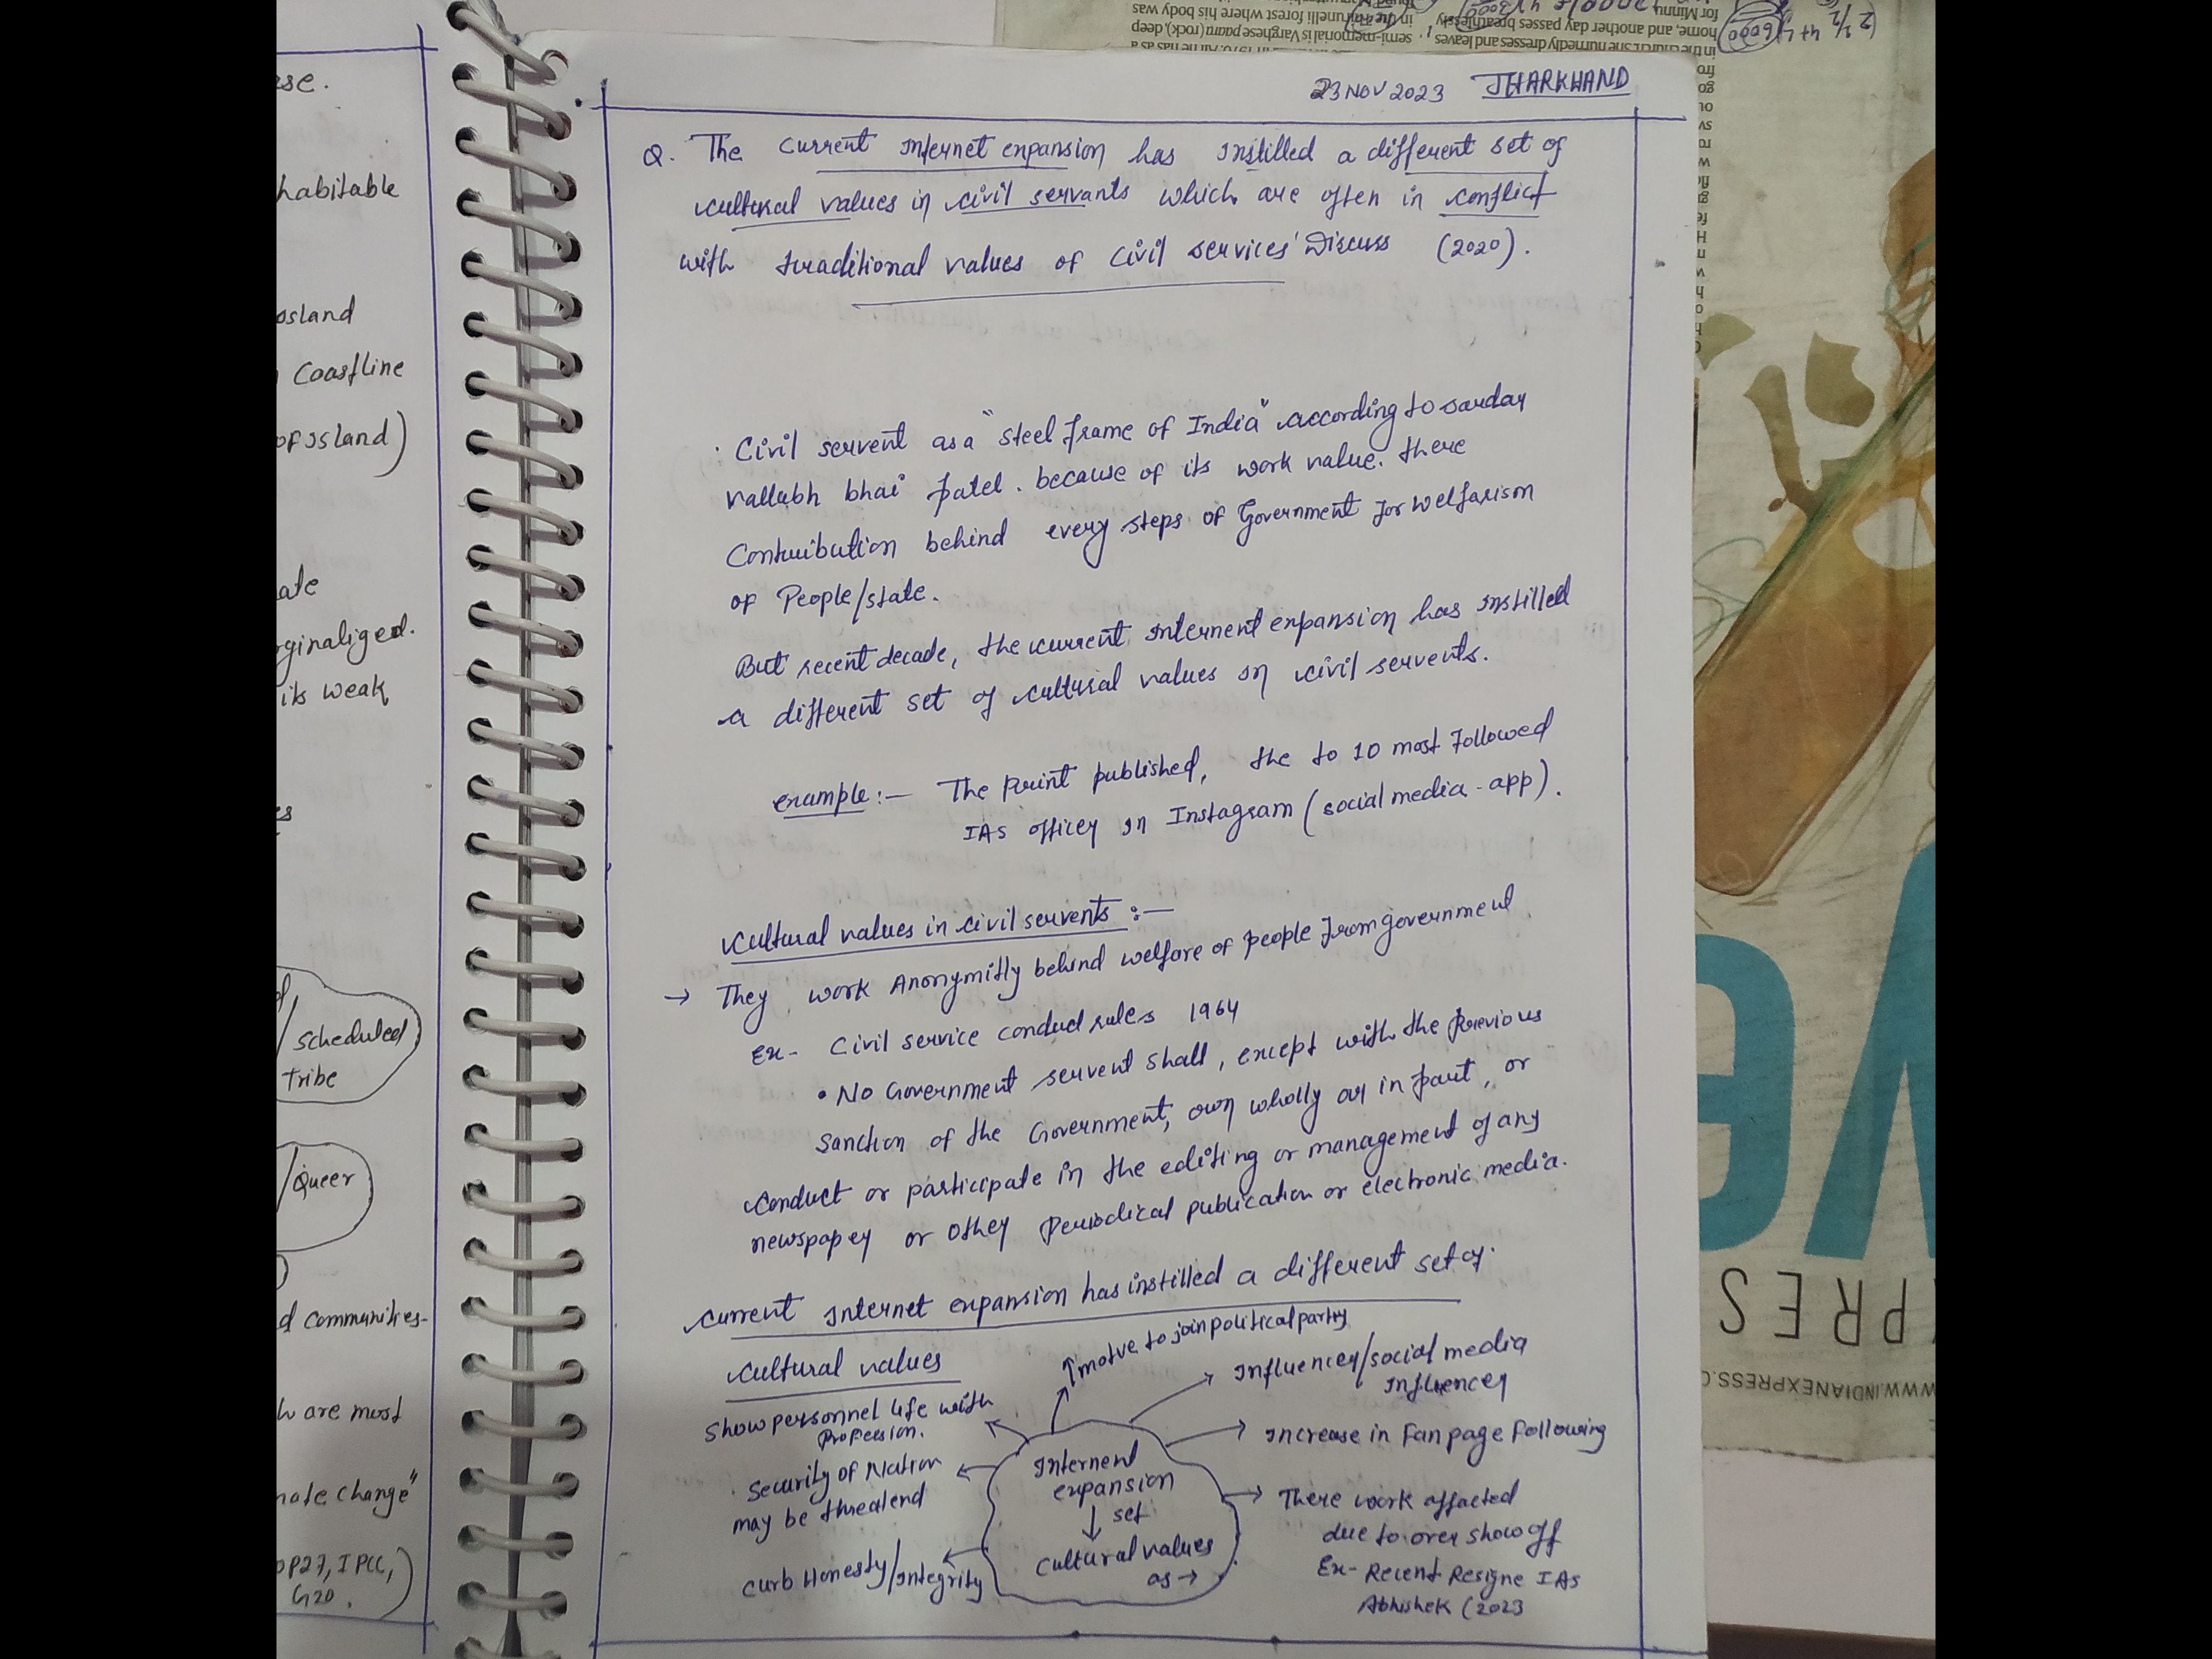 ese.
habitable
osland
Coastline
of Island)
ate
rginalized.
its weak
es
scheduled
Tribe
/Queer
d communities-
h are most
mate change"
OP27, IPCC,
G20.
23 NOV 2023 JHARKHAND
Q. The current Internet expansion has instilled a different set of
cultural values in civil servants which are often in conflict
with traditional values of civil services' Discuss (2020).
· Civil servent as a "steel frame of India" according to sarday
vallabh bhai patel. because of its work value. there
Contribution behind every steps of Government for welfarism
of People/state.
But recent decade, the current Internent expansion has instilled
a different set of cultural values in civil servents.
example:- The Print published, the to 10 most followed
IAS officer in Instagram (social media - app).
Cultural values in civil servents :-
→ They work Anonymitly behind welfare of people from government
Ex- Civil service conduct rules 1964
• No Government servent shall, except with the previous
sanction of the Government, own wholly or in part, or
conduct or participate in the editing or management of any
newspaper or other periodical publication or electronic media.
current Internet expansion has instilled a different set of
cultural values
↑ motve to join political party
Influencer/social media
Influencer
Show personnel life with
Profession.
Increase in Fan page following
Security of Nation
may be threatend
Internent
expansion
↓ set
Cultural values
as →
There work affacted
due to over show off
Ex- Recent Resigne IAS
Abhishek (2023
curb Honesty/Integrity
semi-memorial is Varghese paara (rock), deep
in the Thirunelli forest where his body was
home, and another day passes breathlessly
in the church she hurriedly dresses and leaves
for Minnu,
6000
PRES
WWW.INDIANEXPRESS.C